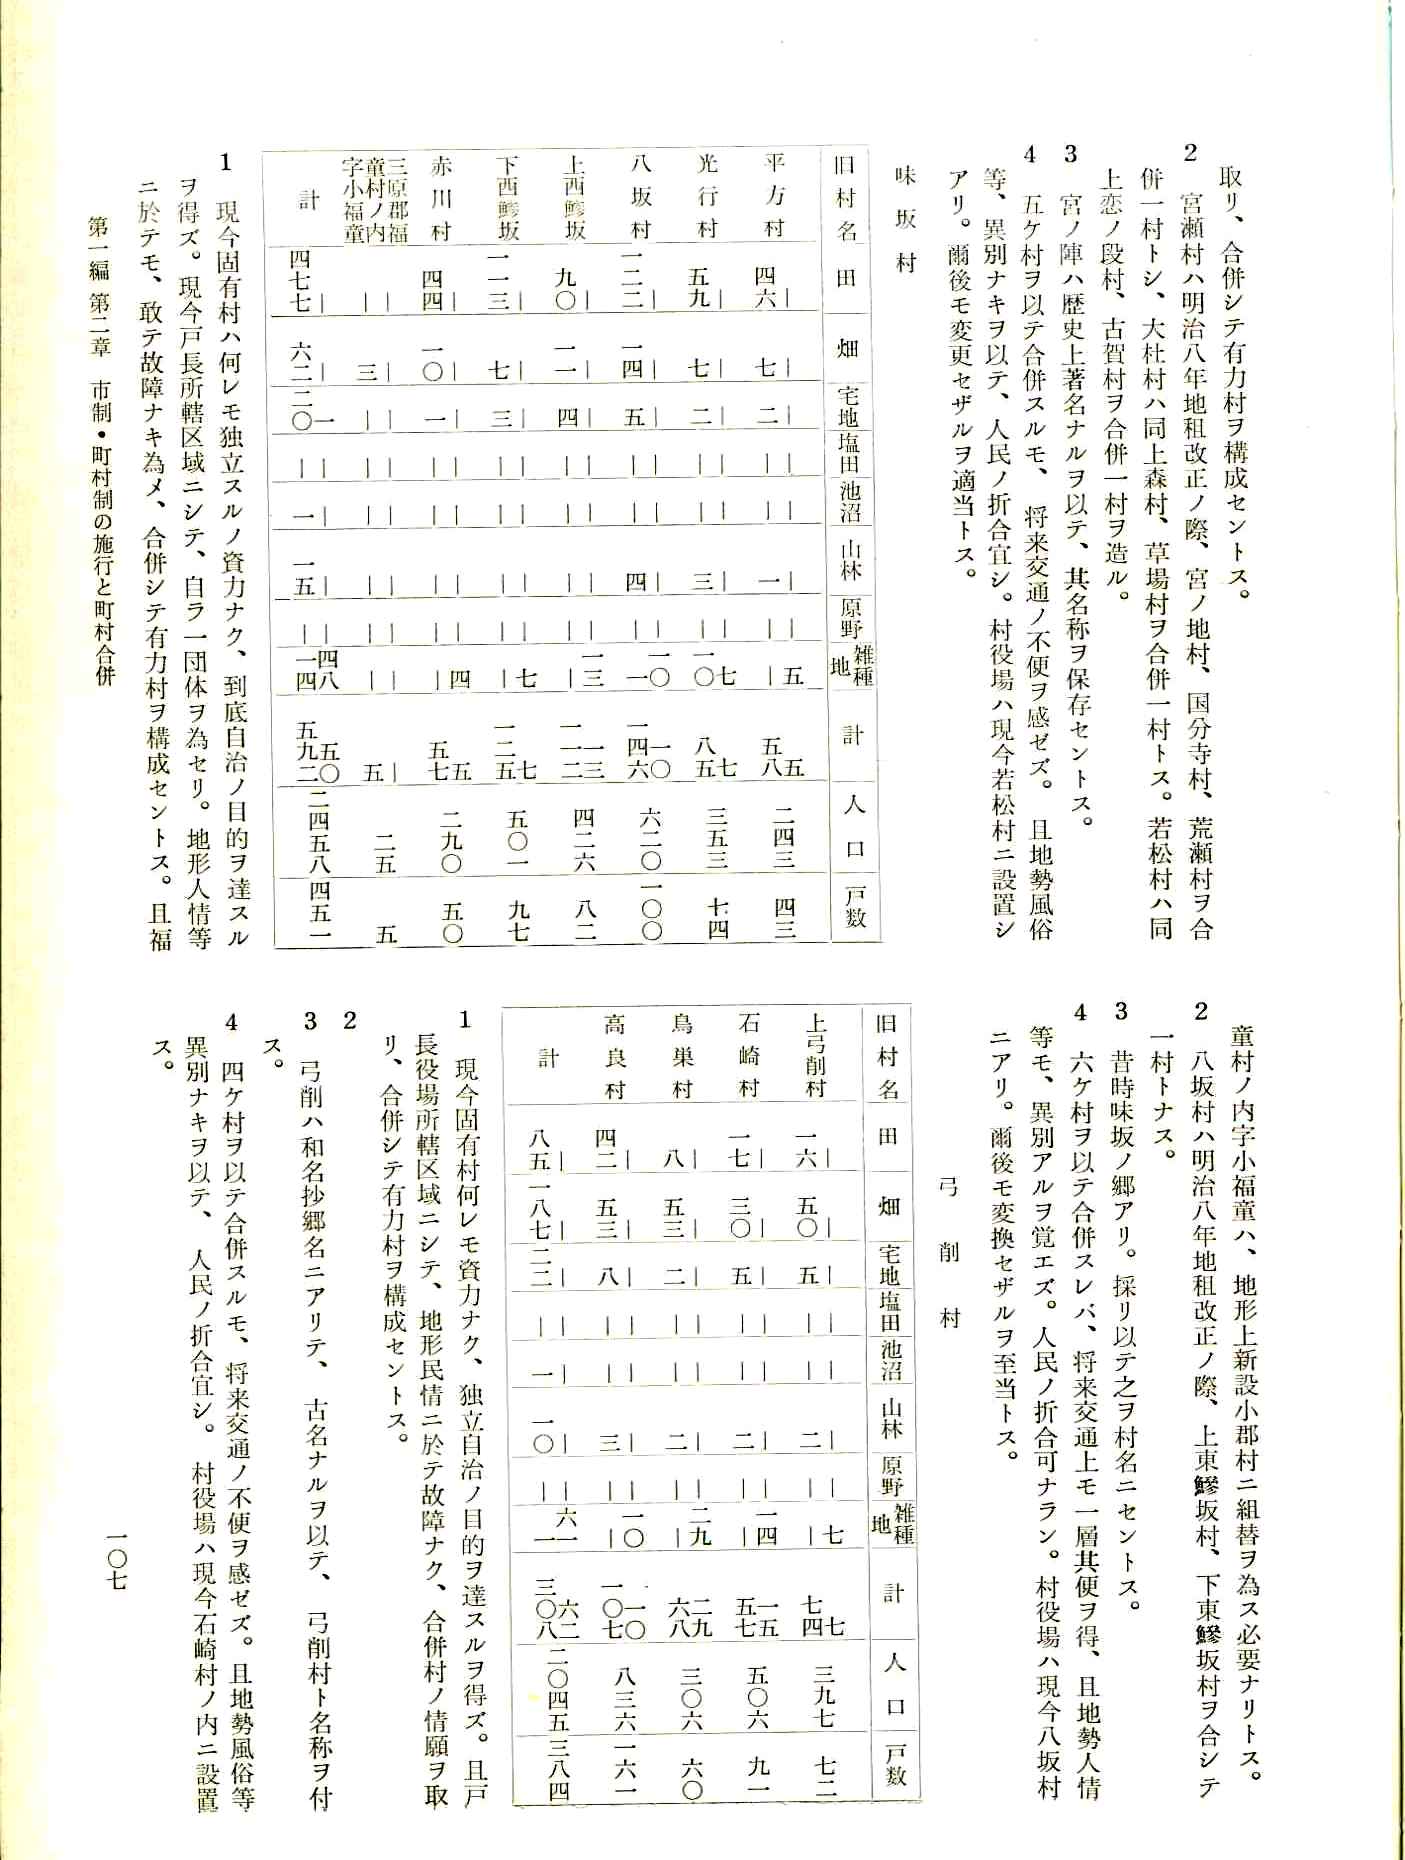 取リ、合併シテ有力村ヲ構成セントス。
2　宮瀬村ハ明治八年地租改正ノ際、宮ノ地村、国分寺村、荒瀬村ヲ合
併一村トシ、大杜村ハ同上森村、草場村ヲ合併一村トス。若松村ハ同
上恋ノ段村、古賀村ヲ合併一村ヲ造ル。
3　宮ノ陣ハ歴史上著名ナルヲ以テ、其名称ヲ保存セントス。
4　五ケ村ヲ以テ合併スルモ、将来交通ノ不便ヲ感ゼズ。且地勢風俗
等、異別ナキヲ以テ、人民ノ折合宜シ。村役場ハ現今若松村ニ設置シ
アリ。爾後モ変更セザルヲ適当トス。
味坂村
旧村名　田　畑　宅地　塩田　池沼　山林　原野　雑種地　計　人口　戸数
平方村　四六｜　七｜　二｜　｜｜　｜｜　一｜　｜｜　｜五　五八 五　二四三　四三
光行村　五九｜　七｜　二｜　｜｜　｜｜　三｜　｜｜　一〇 七　八五 七　三五三　七四
八坂村　一二二｜　一四｜　五｜　｜｜　｜｜　四｜　｜｜　一 一〇　一四六 一〇　六二〇　一〇〇
上西鰺坂　九〇｜　一一｜　四｜　｜｜　｜｜　｜｜　｜｜　｜一三　一一二 一三　四二六　八二
下西鰺坂　一一三｜　七｜　三｜　｜｜　｜｜　｜｜　｜｜　｜七　一二五 七　五〇一　九七
赤川村　四四｜　一〇｜　一｜　｜｜　｜｜　｜｜　｜｜　｜四　五七 五　二九〇　五〇
三原郡福童村ノ内字小福童　｜｜　三｜　｜｜　｜｜　｜｜　｜｜　｜｜　｜｜　五｜　二五　五
計　四七七｜　六二｜　二〇 一　｜｜　一｜　一五｜　｜｜　一四 四八　五九二 五〇　二四五八　四五一
1　現今固有村ハ何レモ独立スルノ資力ナク、到底自治ノ目的ヲ達スル
ヲ得ズ。現今戸長所轄区域ニシテ、自ラ一団体ヲ為セリ。地形人情等
ニ於テモ、敢テ故障ナキ為メ、合併シテ有力村ヲ構成セントス。且福
童村ノ内字小福童ハ、地形上新設小郡村ニ組替ヲ為ス必要ナリトス。
2　八坂村ハ明治八年地租改正ノ際、上東鰺坂村、下東鰺坂村ヲ合シテ
一村トナス。
3　昔時味坂ノ郷アリ。採リ以テ之ヲ村名ニセントス。
4　六ケ村ヲ以テ合併スレバ、将来交通上モ一層其便ヲ得、且地勢人情
等モ、異別アルヲ覚エズ。人民ノ折合可ナラン。村役場ハ現今八坂村
ニアリ。爾後モ変換セザルヲ至当トス。
弓削村
旧村名　田　畑　宅地　塩田　池沼　山林　原野　雑種地　計　人口　戸数
上弓削村　一六｜　五〇｜　五｜　｜｜　｜｜　二｜　｜｜　｜七　七四 七　三九七　七二
石崎村　一七｜　三〇｜　五｜　｜｜　｜｜　二｜　｜｜　｜一四　五七 一五　五〇六　九一
鳥巣村　八｜　五三｜　二｜　｜｜　｜｜　二｜　｜｜　｜二九　六八 二九　三〇六　六〇
高良村　四二｜　五三｜　八｜　｜｜　｜｜　三｜　｜｜　｜一〇　一〇七 一〇　八三六　一六一
計　八五｜　一八七｜　二二｜　｜｜　一｜　一〇｜　｜｜　一 六一　三〇八 六二　二〇四五　三八四
1　現今固有村何レモ資力ナク、独立自治ノ目的ヲ達スルヲ得ズ。且戸
長役場所轄区域ニシテ、地形民情ニ於テ故障ナク、合併村ノ情願ヲ取
リ、合併シテ有力村ヲ構成セントス。
2
3　弓削ハ和名抄郷名ニアリテ、古名ナルヲ以テ、弓削村ト名称ヲ付
ス。
4　四ケ村ヲ以テ合併スルモ、将来交通ノ不便ヲ感ゼズ。且地勢風俗等
異別ナキヲ以テ、人民ノ折合宜シ。村役場ハ現今石崎村ノ内ニ設置
ス。
第一編 第二章　市制・町村制の施行と町村合併
一〇七